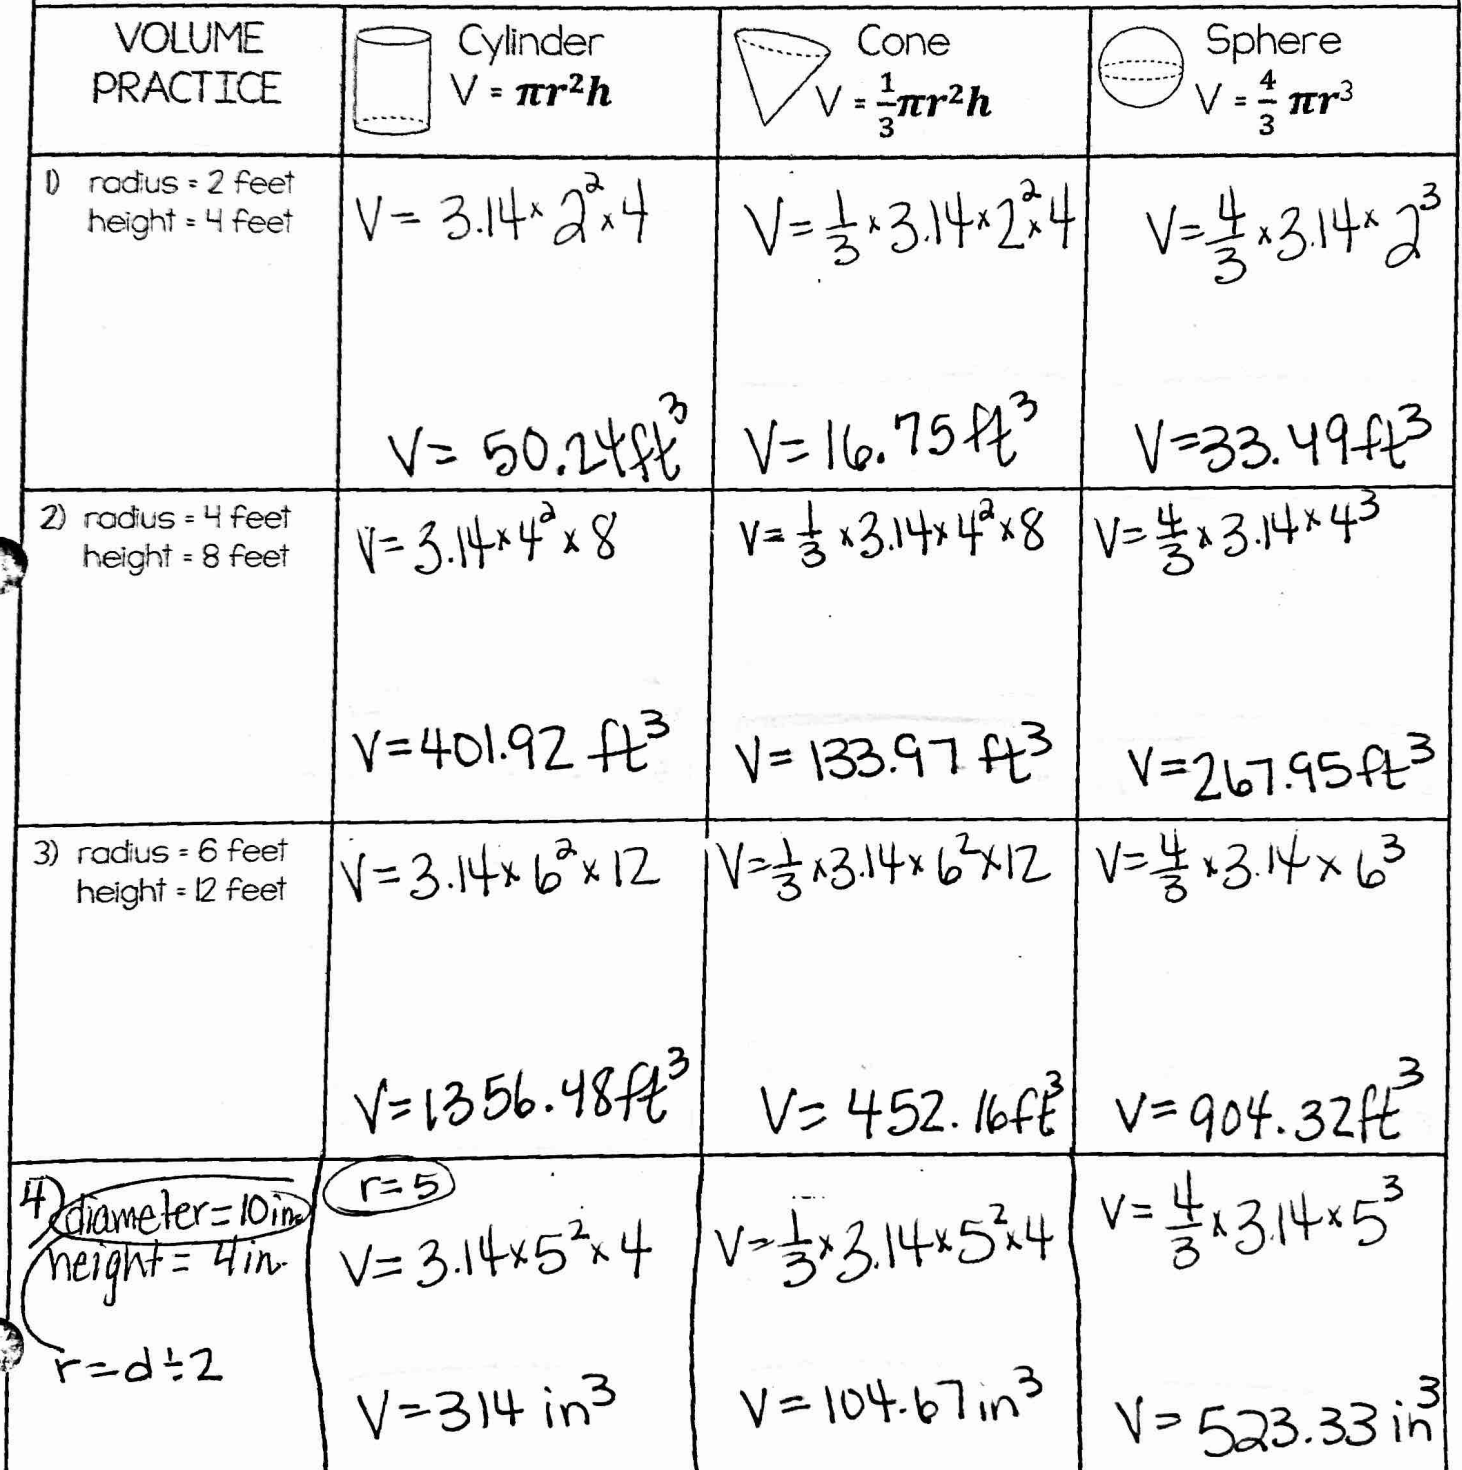 VOLUME
PRACTICE
Cylinder
V = πr²h
Cone
V = 1/3 πr²h
Sphere
V = 4/3 πr³
1) radius = 2 feet
height = 4 feet
V = 3.14 × 2² × 4
V = 50.24 ft³
V = 1/3 × 3.14 × 2² × 4
V = 16.75 ft³
V = 4/3 × 3.14 × 2³
V = 33.49 ft³
2) radius = 4 feet
height = 8 feet
V = 3.14 × 4² × 8
V = 401.92 ft³
V = 1/3 × 3.14 × 4² × 8
V = 133.97 ft³
V = 4/3 × 3.14 × 4³
V = 267.95 ft³
3) radius = 6 feet
height = 12 feet
V = 3.14 × 6² × 12
V = 1356.48 ft³
V = 1/3 × 3.14 × 6² × 12
V = 452.16 ft³
V = 4/3 × 3.14 × 6³
V = 904.32 ft³
4) diameter = 10 in.
height = 4 in.
r = d ÷ 2
r = 5
V = 3.14 × 5² × 4
V = 314 in³
V = 1/3 × 3.14 × 5² × 4
V = 104.67 in³
V = 4/3 × 3.14 × 5³
V = 523.33 in³